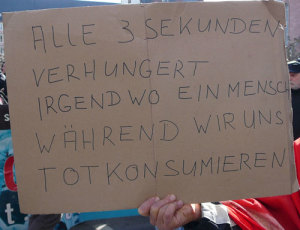 ALLE 3 SEKUNDEN
VERHUNGERT
IRGENDWO EIN MENSCH
WÄHREND WIR UNS
TOTKONSUMIEREN